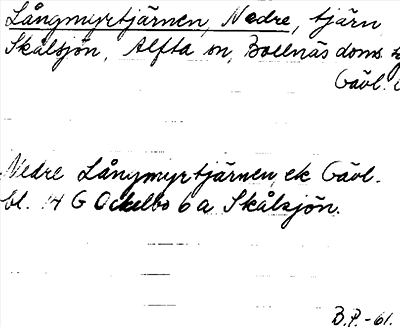 Långmyrtjärnen, Nedre, tjärn
Skålsjön, Alfta sn, Bollnäs doms
Gävl.
Nedre Långmyrtjärnen, ek Gävl.
bl. 14 G Ockelbo 6 a Skålsjön.
B.P.-61.